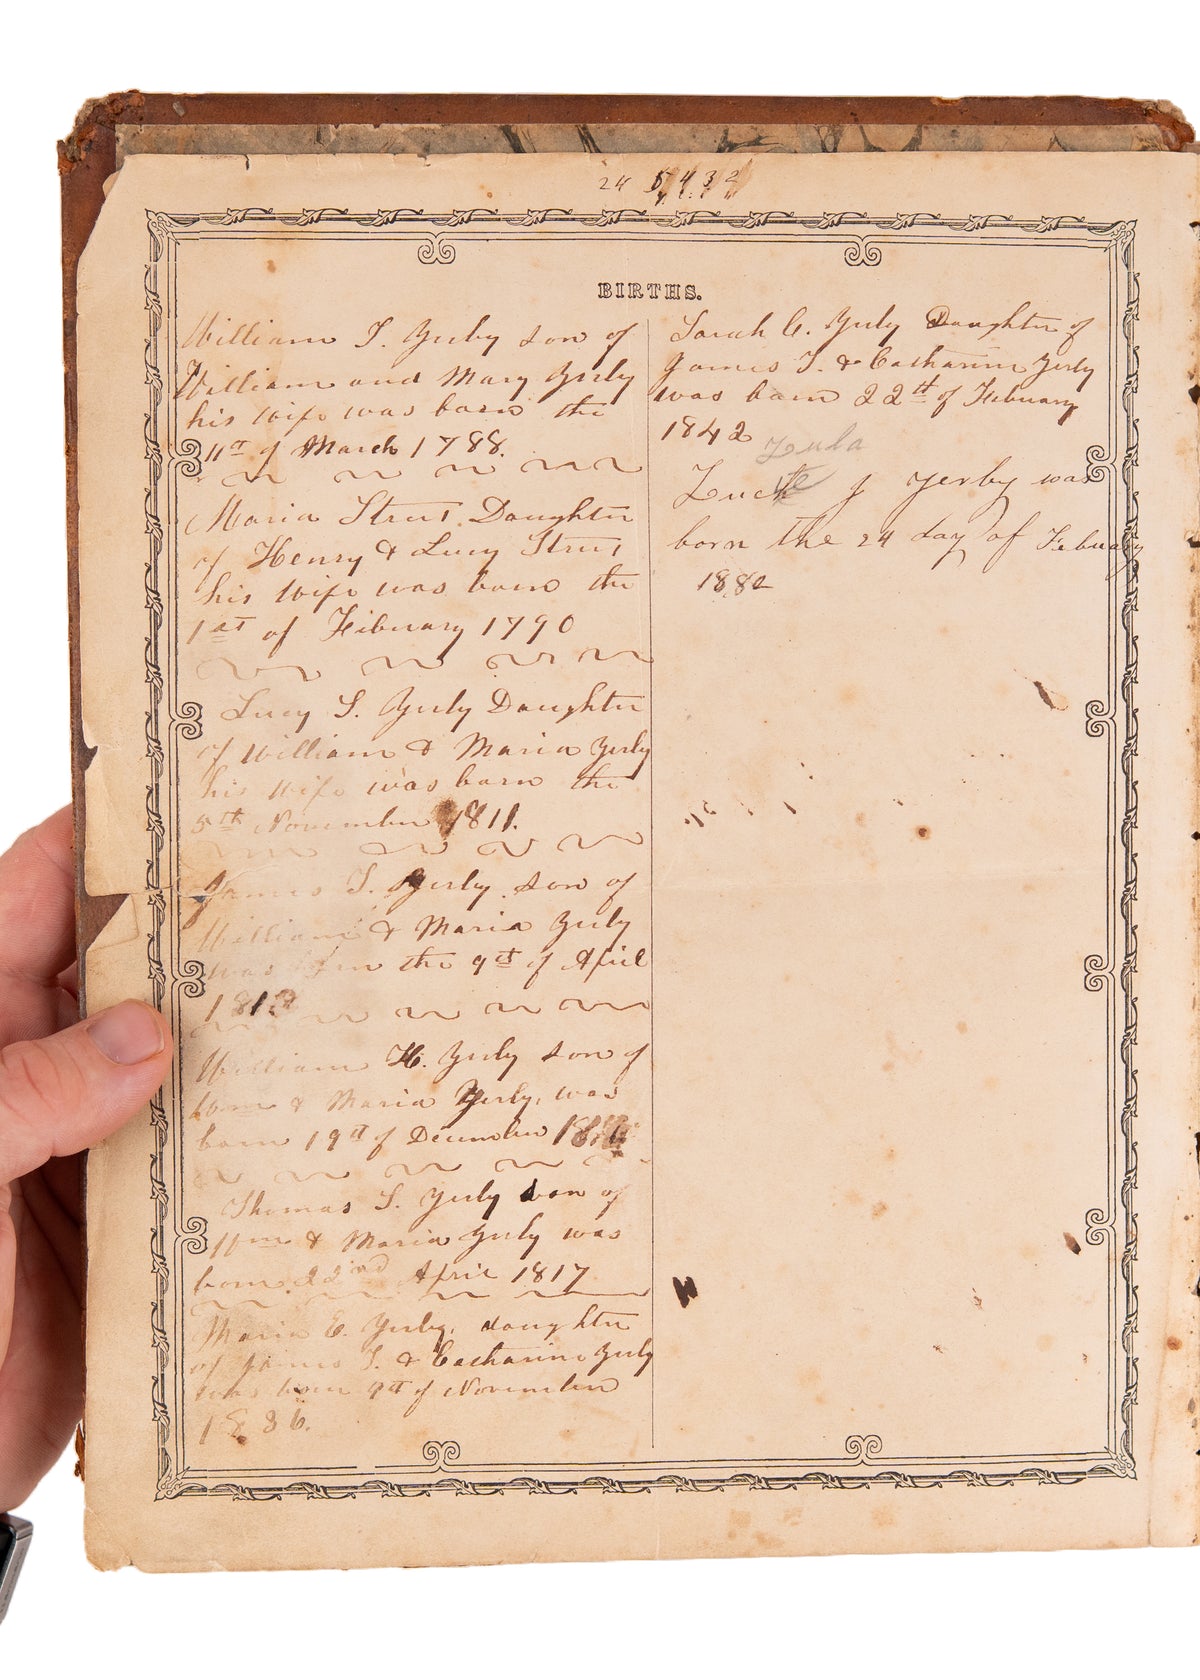 24 5 4 3 2
BIRTHS.
William T. Yerby son of
William and Mary Yerby
his wife was born the
11th of March 1788.
Maria Street Daughter
of Henry & Lucy Street
his wife was born the
1st of February 1790
Lucy S. Yerby Daughter
of William & Maria Yerby
his wife was born the
5th November 1811.
James T. Yerby son of
William & Maria Yerby
was born the 9th of April
181
William H. Yerby son of
Wm & Maria Yerby, was
born 19th of December
Thomas S. Yerby son of
Wm & Maria Yerby was
born 22nd April 1817
Maria E. Yerby, daughter
of James T. & Catharine Yerby
was born 9th of November
1836.
Sarah C. Yerby Daughter of
James T. & Catharine Yerby
was born 22th of February
1842
Lula
J Yerby was
born the 24 day of February
1882